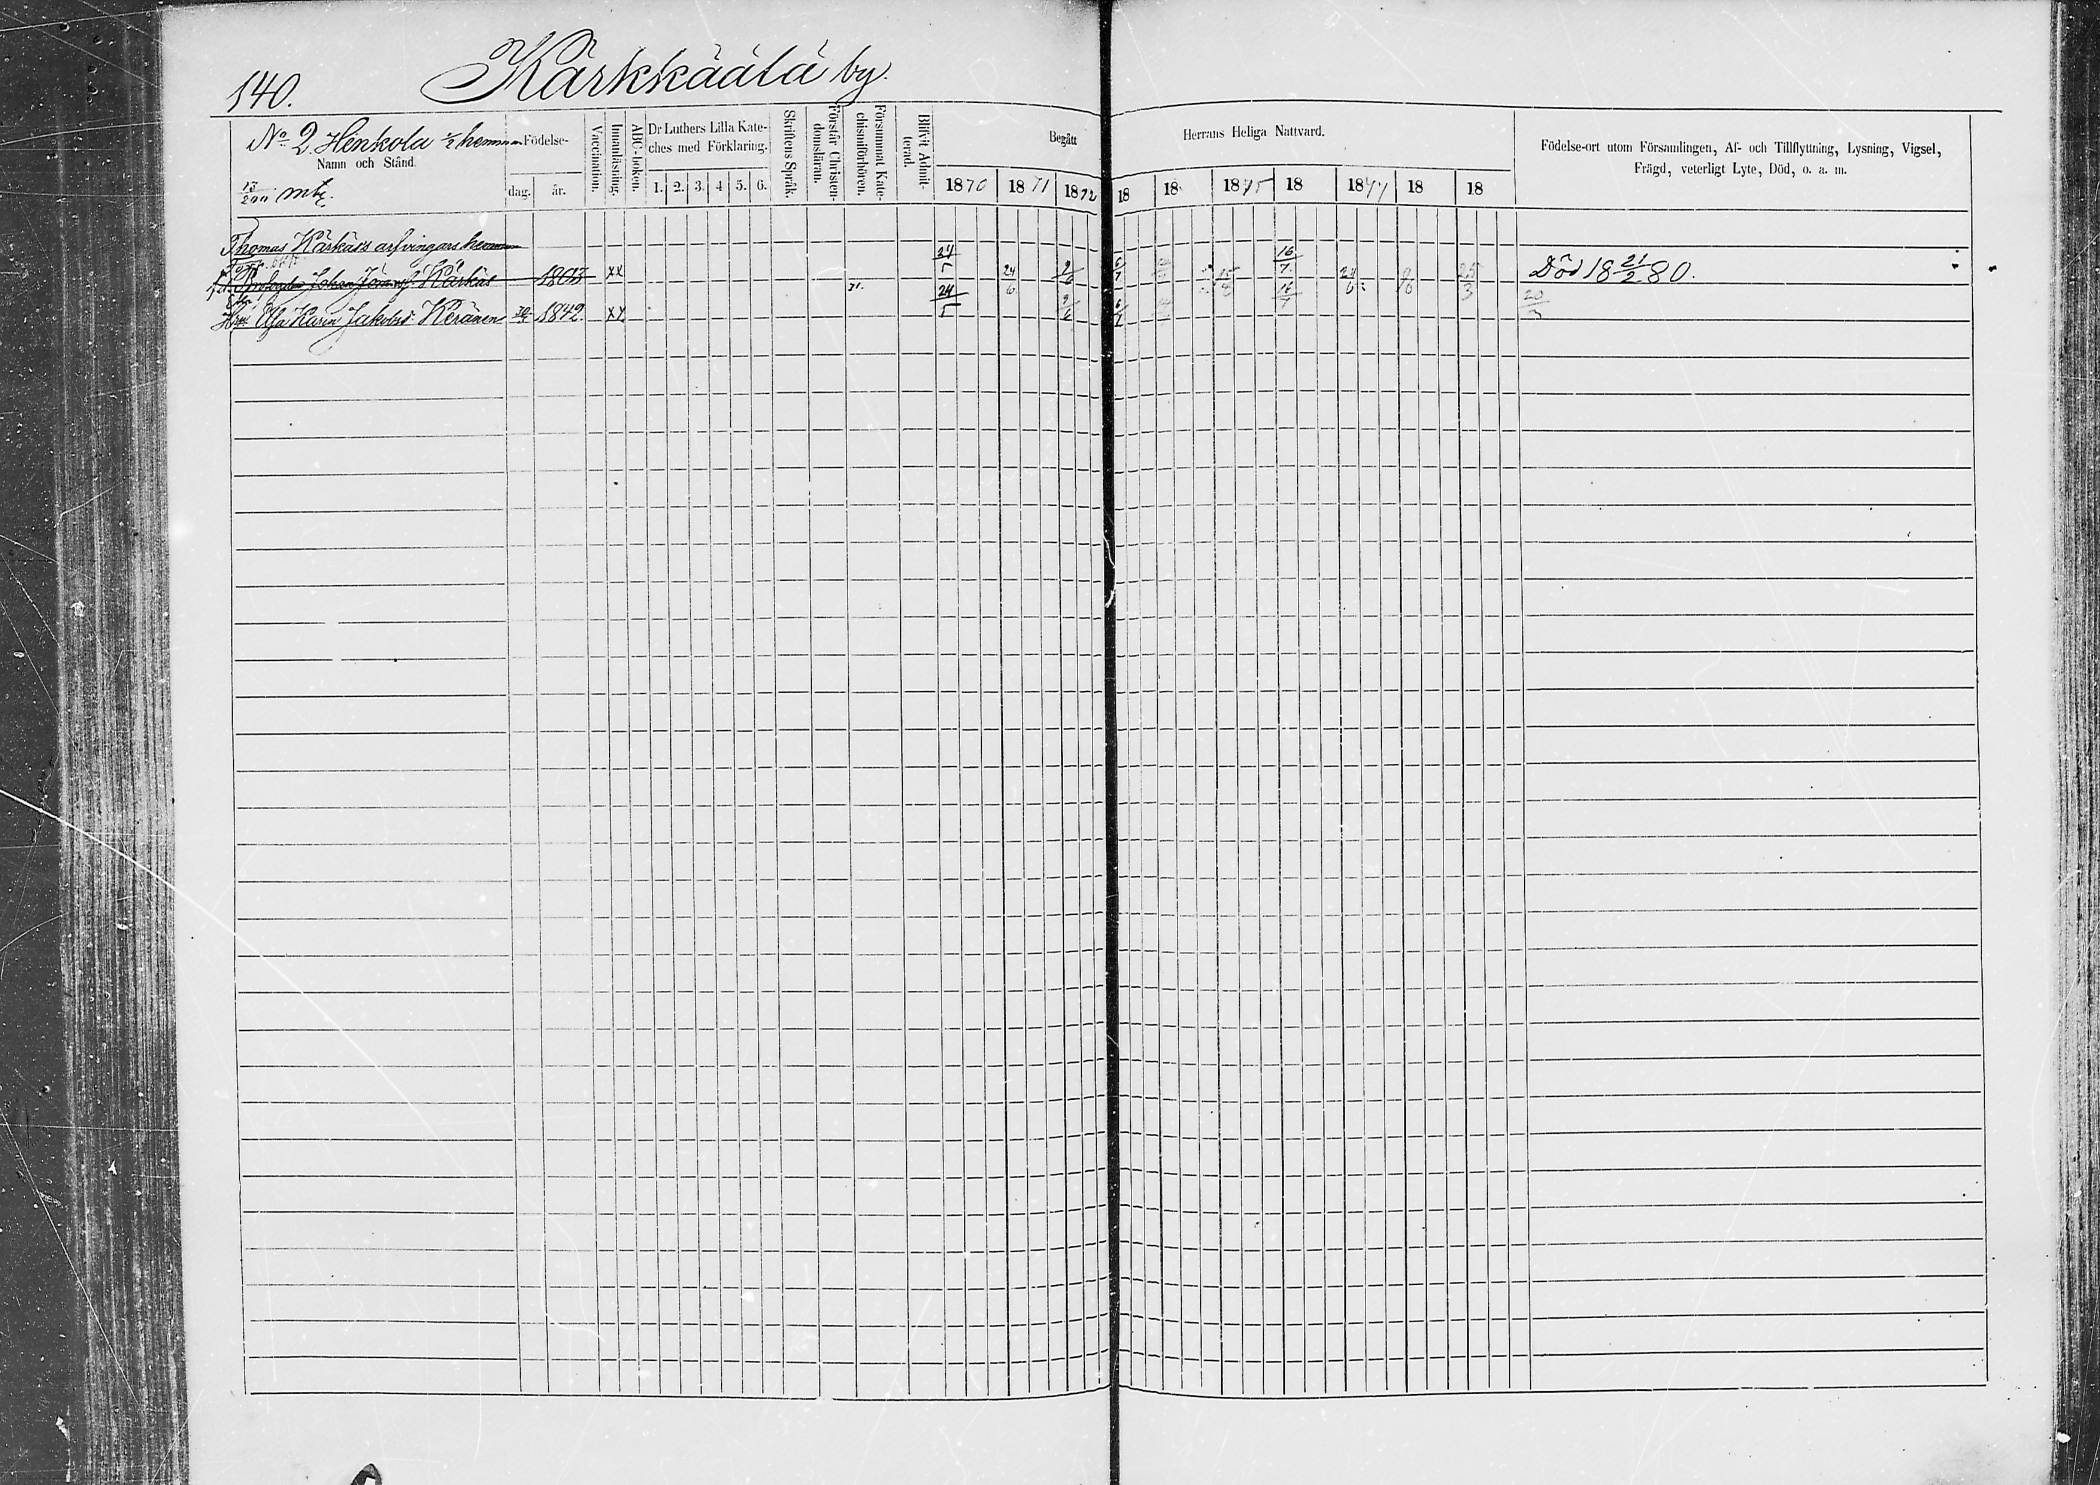 140. Kärkkäälä by.
No 2. Henkola 1/2 hemman
Namn och Stånd.
mtl.
Födelse-
dag. år.
Vaccination.
Innanläsning.
ABC-boken.
Dr Luthers Lilla Kate-
ches med Förklaring.
1. 2. 3. 4 5. 6.
Skriftens Språk.
Förstår Christen-
domsläran.
Försummat Kate-
chismiförhören.
Blifvit Admit-
terad.
Begått Herrans Heliga Nattvard.
1870 1871 1872 18 18 1875 18 1877 18 18
Födelse-ort utom Församlingen, Af- och Tillflyttning, Lysning, Vigsel,
Frägd, veterligt Lyte, Död, o. a. m.
Thomas Kärkäs arfvingars hemman
Johan Kärkäs 1803 xx 71. 24/5 24/6 9/6 6/7 16/7 24/6 Död 18 21/2 80.
Karin Jakobsd. Keränen 1842. xx 24/5 9/6 6/7 16/7 20/3